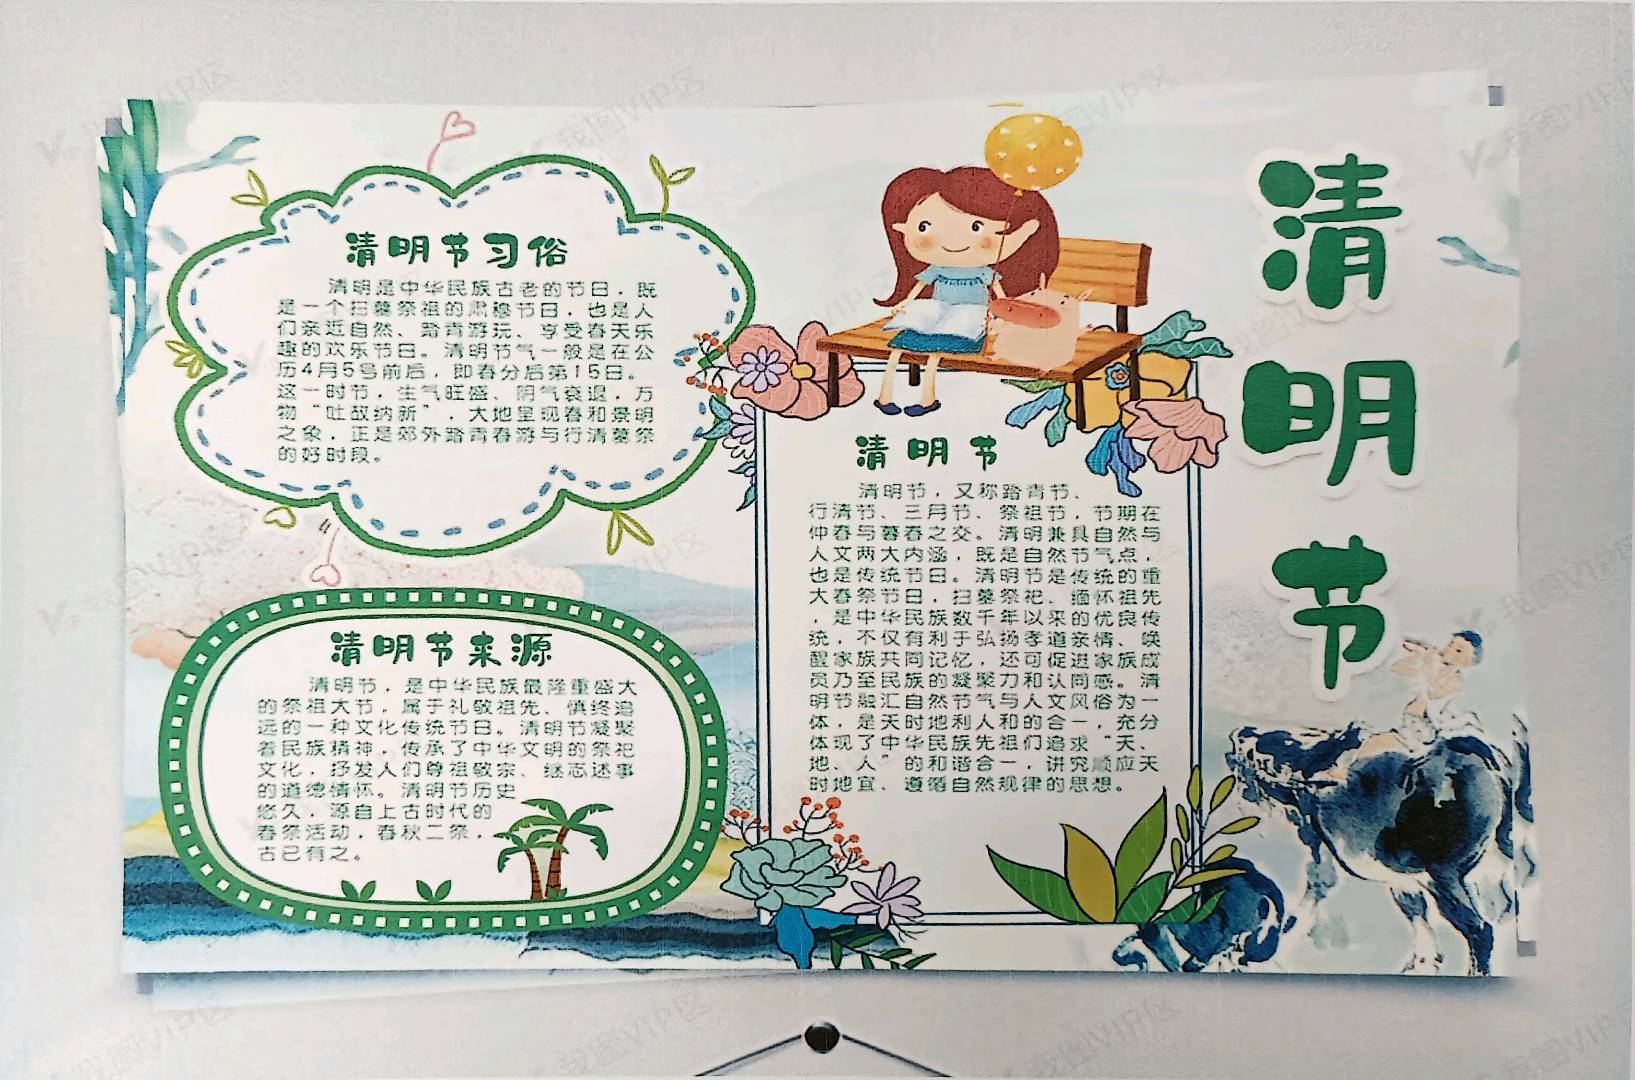 清明节
清明节习俗
清明是中华民族古老的节日，既
是一个扫墓祭祖的肃穆节日，也是人
们亲近自然、踏青游玩、享受春天乐
趣的欢乐节日。清明节气一般是在公
历4月5号前后，即春分后第15日。
这一时节，生气旺盛、阴气衰退，万
物“吐故纳新”，大地呈现春和景明
之象，正是郊外踏青春游与行清墓祭
的好时段。
清明节来源
清明节，是中华民族最隆重盛大
的祭祖大节，属于礼敬祖先、慎终追
远的一种文化传统节日。清明节凝聚
着民族精神，传承了中华文明的祭祀
文化，抒发人们尊祖敬宗、继志述事
的道德情怀。清明节历史
悠久，源自上古时代的
春祭活动，春秋二祭，
古已有之。
清明节
清明节，又称踏青节、
行清节、三月节、祭祖节，节期在
仲春与暮春之交。清明兼具自然与
人文两大内涵，既是自然节气点，
也是传统节日。清明节是传统的重
大春祭节日，扫墓祭祀、缅怀祖先
，是中华民族数千年以来的优良传
统，不仅有利于弘扬孝道亲情、唤
醒家族共同记忆，还可促进家族成
员乃至民族的凝聚力和认同感。清
明节融汇自然节气与人文风俗为一
体，是天时地利人和的合一，充分
体现了中华民族先祖们追求“天、
地、人”的和谐合一，讲究顺应天
时地宜、遵循自然规律的思想。